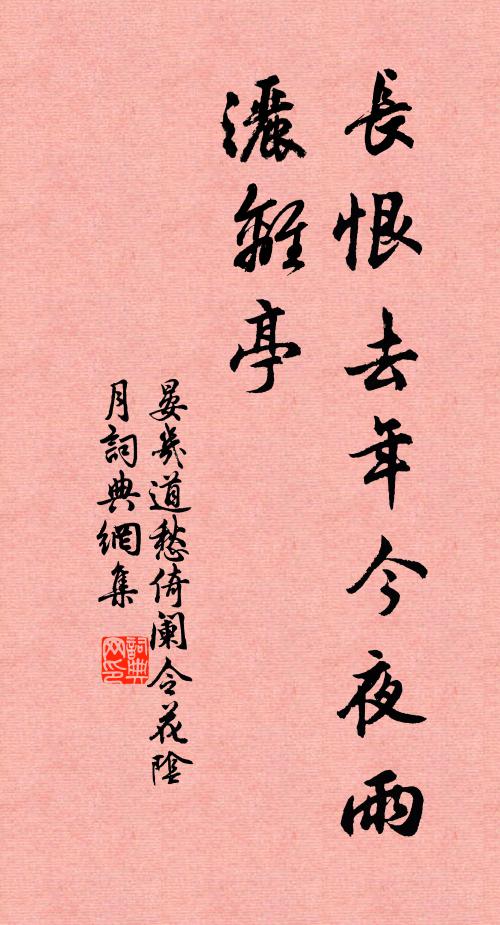 長恨去年今夜雨
灑離亭
晏幾道愁倚闌令花陰
月詞典網集
詞典
网印